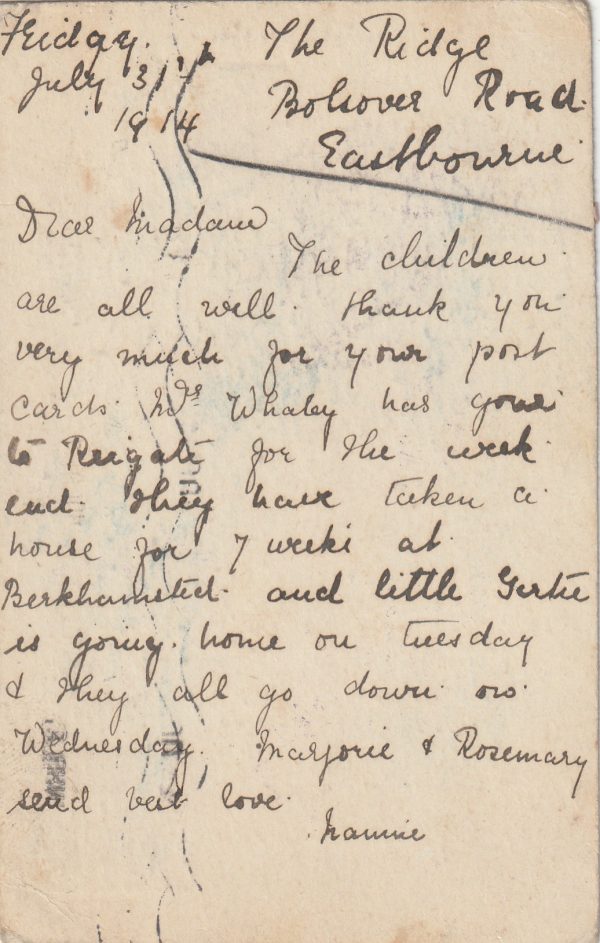 Friday. The Ridge
July 31st Bolsover Road.
1914 Eastbourne.
Dear Madam
The children
are all well. thank you
very much for your post
cards. Mrs Whaley has gone
to Reigate for the week
end. they have taken a
house for 7 weeks at.
Berkhamsted. and little Gertie
is going. home on tuesday
& they all go down. on.
Wednesday. Marjorie & Rosemary
send best love.
Nannie